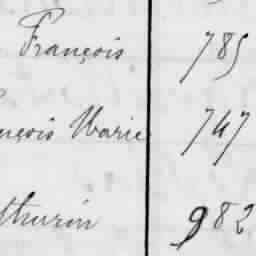 François 785
nçois Marie 747
thurin 982